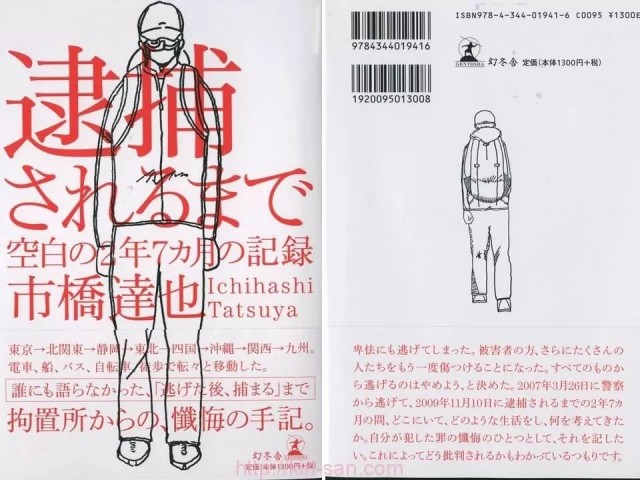 逮捕
されるまで
空白の2年7カ月の記録
市橋達也
Ichihashi
Tatsuya
東京→北関東→静岡→東北→四国→沖縄→関西→九州。
電車、船、バス、自転車、徒歩で転々と移動した。
誰にも語らなかった、「逃げた後、捕まる」まで
拘置所からの、懺悔の手記。
幻冬舎
定価(本体1300円+税)
ISBN978-4-344-01941-6 C0095 ¥1300E
9784344019416
1920095013008
GENTOSHA
幻冬舎 定価(本体1300円+税)
卑怯にも逃げてしまった。被害者の方、さらにたくさんの
人たちをもう一度傷つけることになった。すべてのものか
ら逃げるのはやめよう、と決めた。2007年3月26日に警察
から逃げて、2009年11月10日に逮捕されるまでの2年7カ
月の間、どこにいて、どのような生活をし、何を考えてきた
か。自分が犯した罪の懺悔のひとつとして、それを記した
い。これによってどう批判されるかもわかっているつもりです。